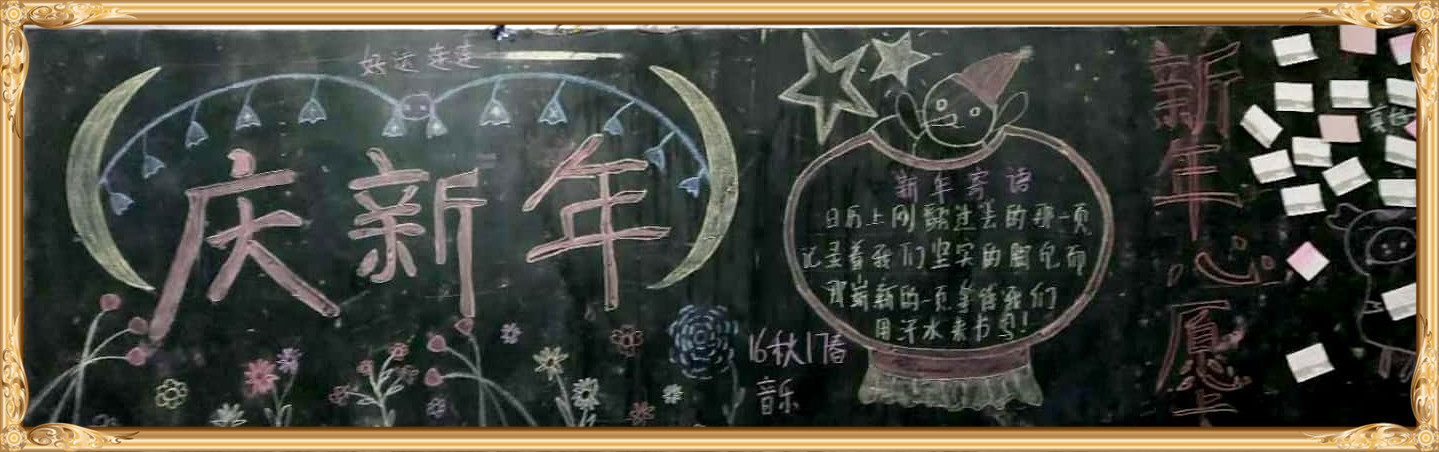 好运连连
庆新年
新年寄语
日历上刚翻过去的那一页
记录着我们坚实的脚印而
那崭新的一页等待我们
用汗水来书写！
16秋17春
音乐
新年心愿